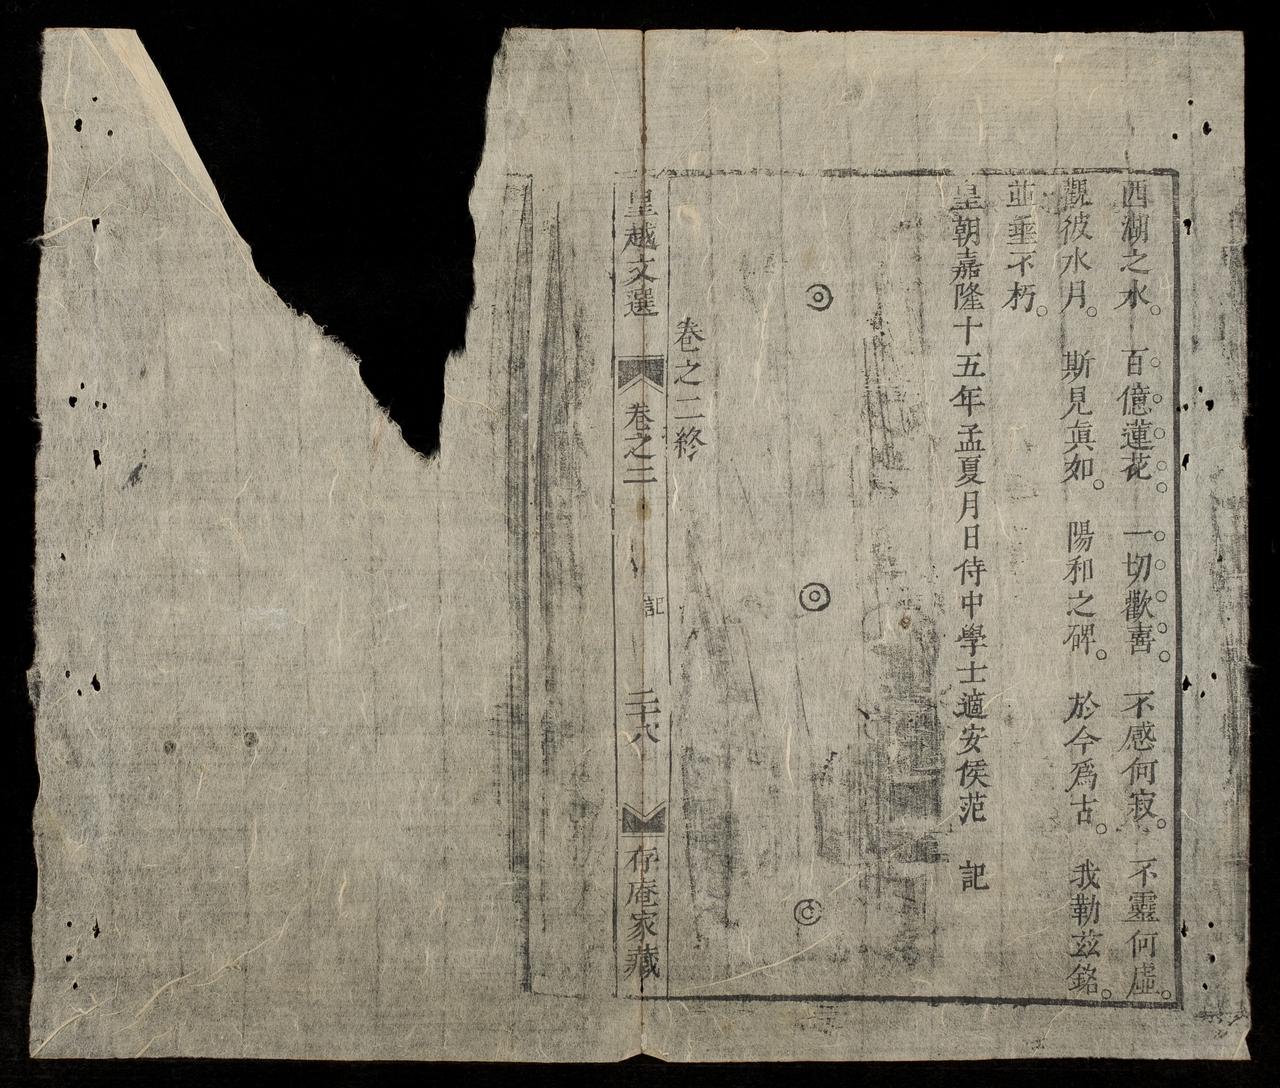 西湖之水。百億蓮花。一切歡喜。不感何寂。不靈何虛。
觀彼水月。斯見眞如。陽和之碑。於今爲古。我勒茲銘。
並垂不朽。
皇朝嘉隆十五年孟夏月日侍中學士適安侯范 記
卷之二終
皇越文選 卷之二 記 二十八 存庵家藏